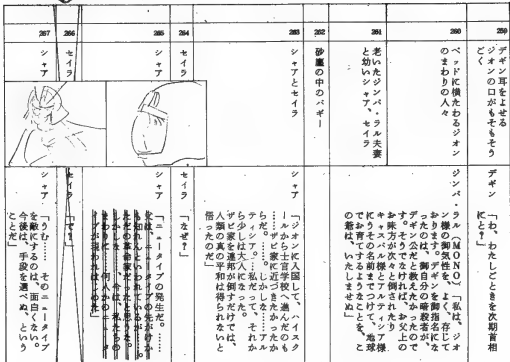 259
デギン耳をよせる
ジオンの口がもそもそう
ごく
デギン
「わ、わたしごときを次期首相
にと?」
260
ベッドに横たわるジオン
のまわりの人々
ジンバ・ラル(MONO)「私は、ジオ
ン様の御気性を、よく、存じて
おります。デギンを御指名にな
ったのは、御自分の暗殺者が、
デギン公だと教えたかったので
す。そうでなければ、お父上の
お味方が次々と倒されたり、
キャスバル様とアルティシア様
にうその名前までつけて、地球
でお育てするようなことを、こ
の爺は、いたしませぬ」
261
老いたジンバ・ラル夫妻
と幼いシャア、セイラ
262
砂塵の中のバギー
263
シャアとセイラ
シャア
「ジオンに入国して、ハイスク
ールから士官学校へ進んだのも
……ザビ家に近づきたかったか
らだ。……しかしな……アル
ティシア……私だって、それか
ら少しは大人になった。
ザビ家を連邦が倒すだけでは、
人類の真の平和は得られないと
悟ったのだ」
264
セイラ
セイラ
「なぜ?」
265
シャア
シャア
「ニュータイプの発生だ。……
266
セイラ
セイラ
「で?」
267
シャア
シャア
「うむ…… そのニュータイプ
を敵にするのは、面白くない。
今後は、手段を選べぬ、という
ことだ」